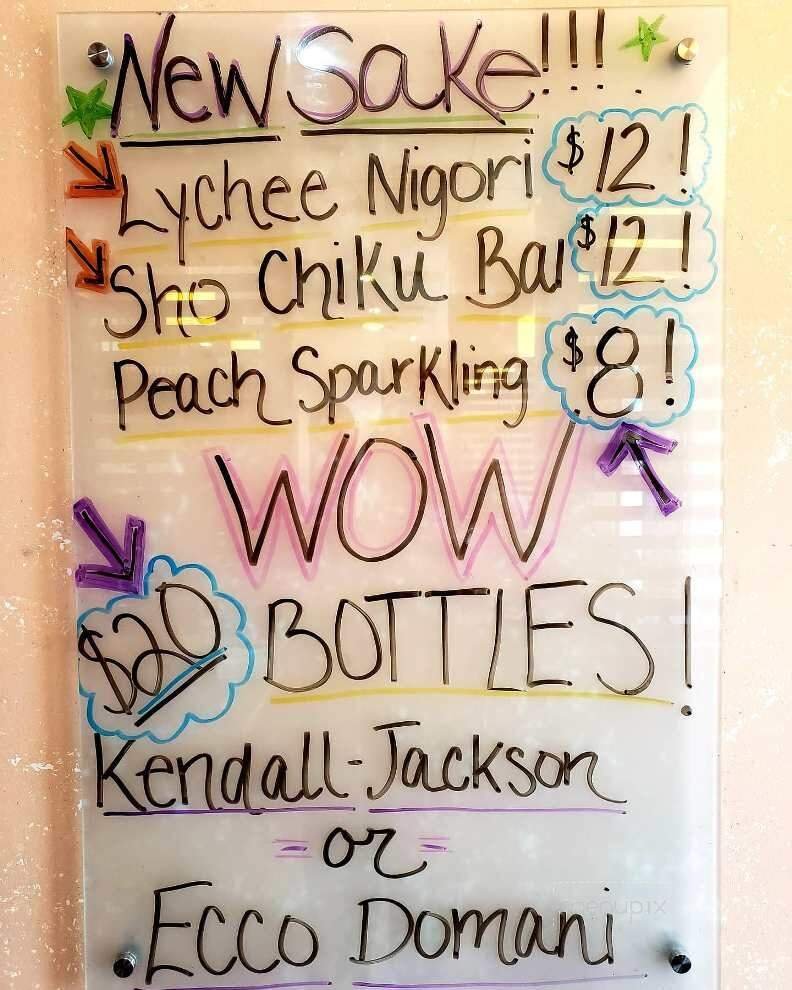 New Sake!!!
Lychee Nigori $12!
Sho Chiku Bai $12!
Peach Sparkling $8!
WOW
$20 BOTTLES!
Kendall-Jackson
= or =
Ecco Domani
menupix